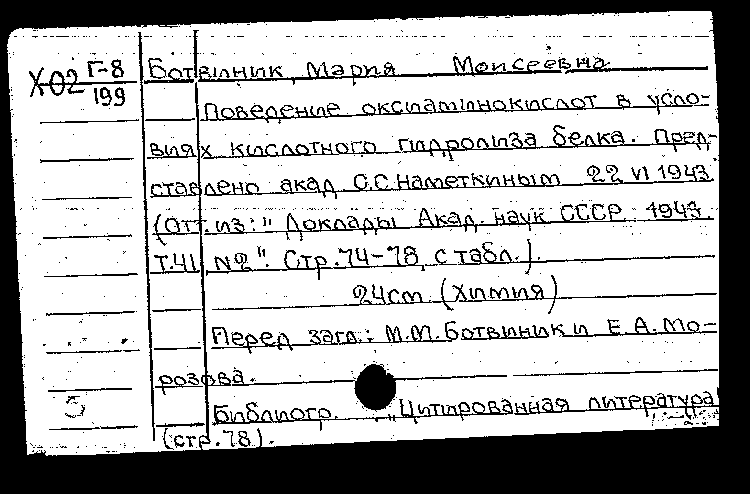 Х02 Г-8/199
Ботвиник, Мария Моисеевна
Поведение оксиаминокислот в усло-
виях кислотного гидролиза белка. Пред-
ставлено акад С.С.Наметкиным 22 VI 1943.
(Отт. из: "Доклады Акад. наук СССР 1943.
Т.41, №2". Стр.74-78, с табл.).
24cm. (Химия)
Перед загл.: М.М.Ботвиник и Е.А.Мо-
розова.
Библиогр. "Цитированная литература"
(стр.78).
5